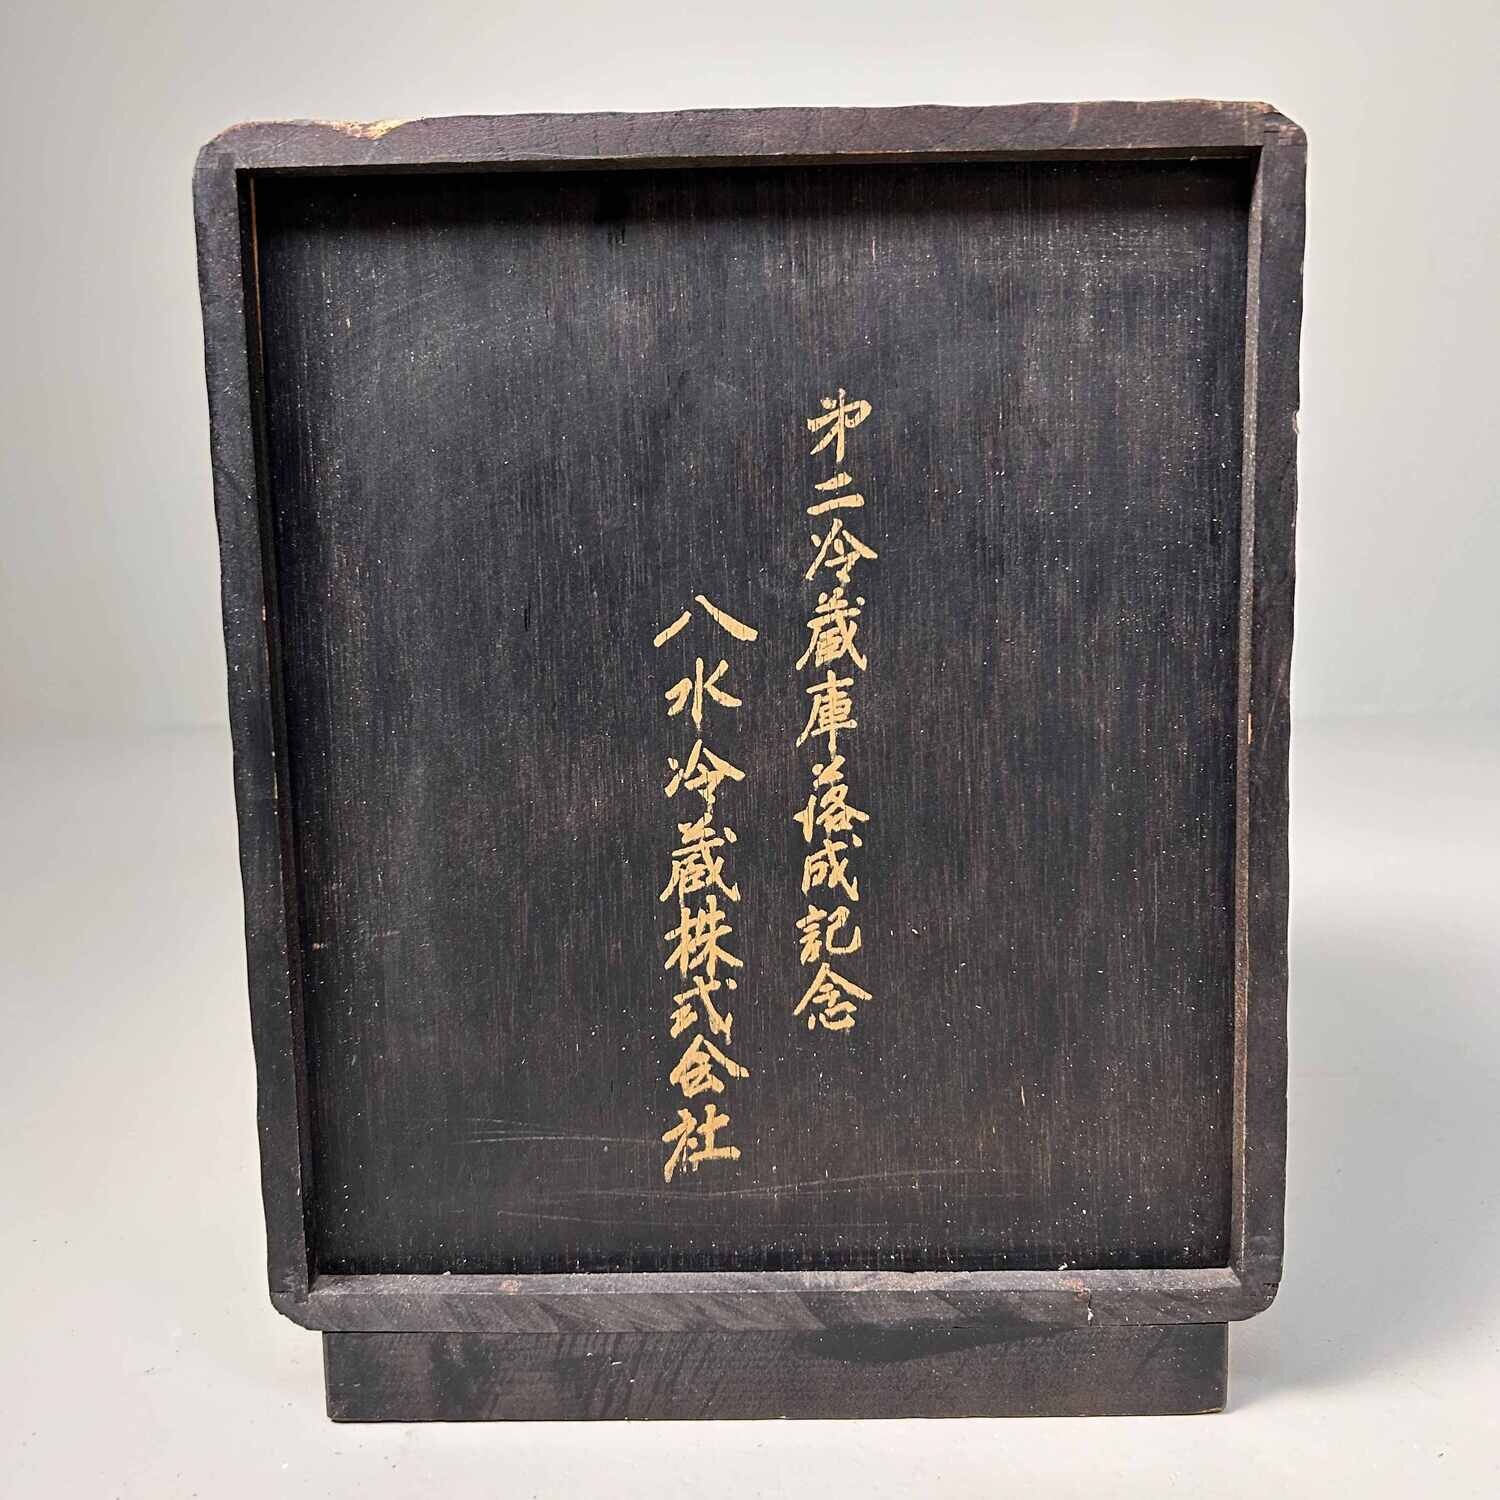 第二冷蔵庫落成記念
八水冷蔵株式会社